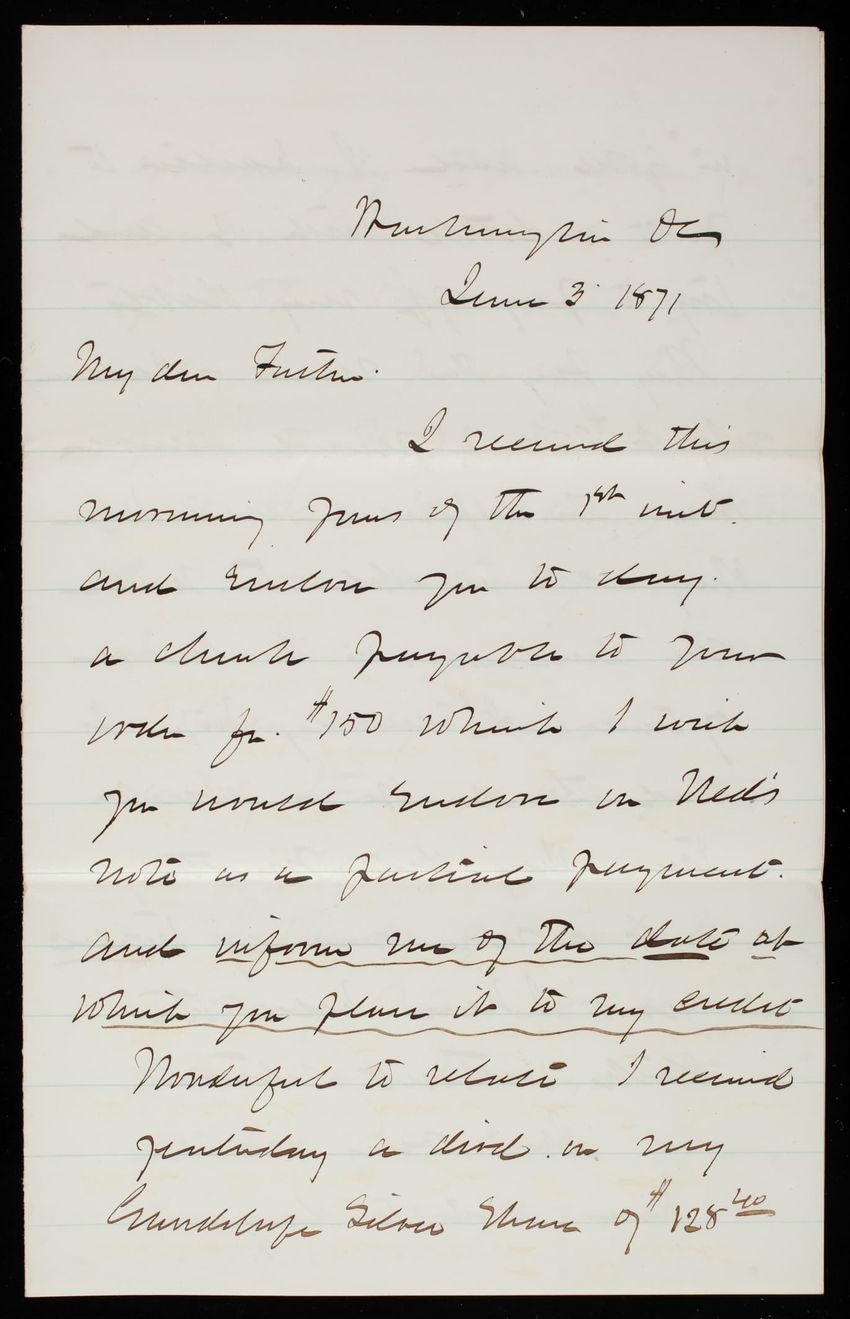 Washington DC
June 3 1871
My dear Father.
I received this
morning yours of the 1st inst.
and Enclose you to day.
a check payable to your
order for $150 which I wish
you would Endorse on Ned's
note as a partial payment.
and inform me of the date at
which you place it to my credit
Wonderful to relate I received
yesterday a divd. on my
Guadelupe Silver Share of $128 40